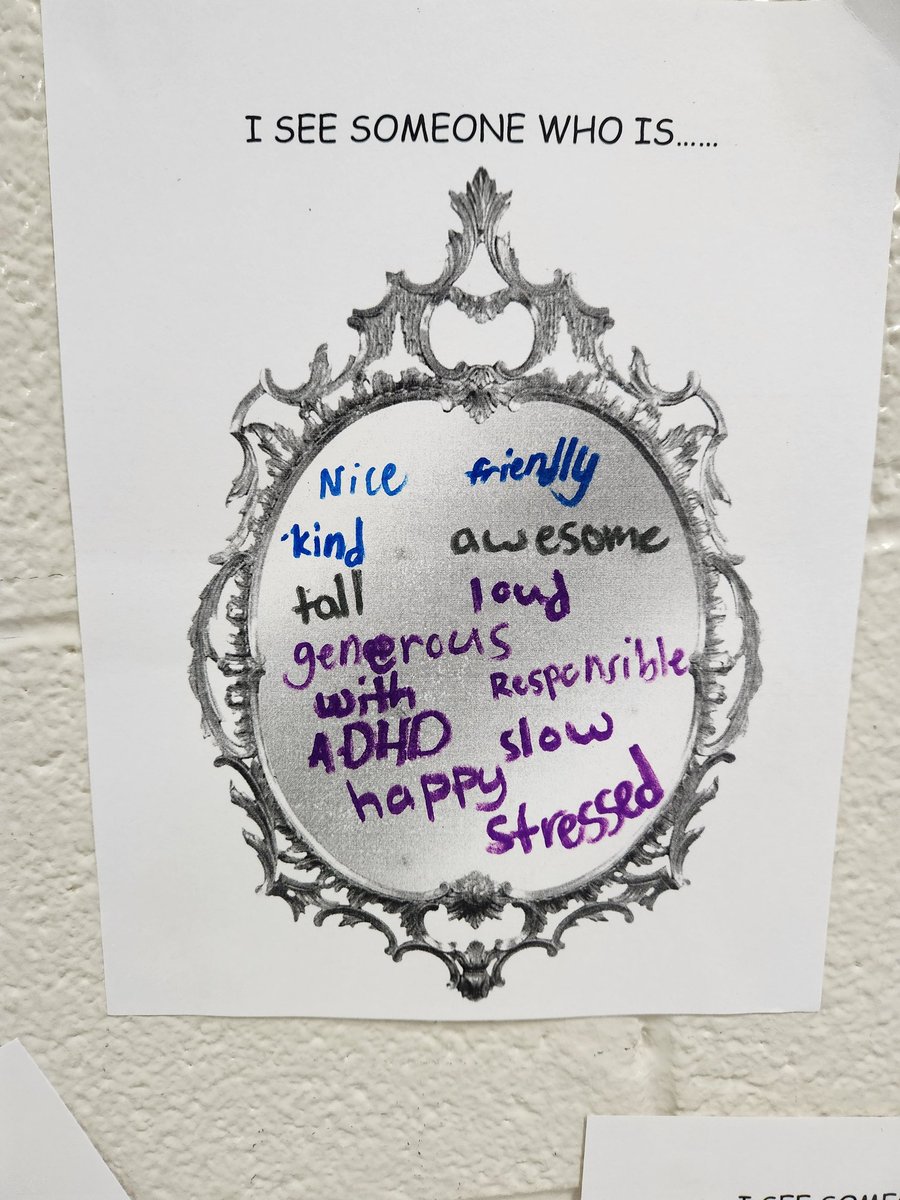 I SEE SOMEONE WHO IS......
Nice friendly
kind awesome
tall loud
generous
with Responsible
ADHD slow
happy
stressed
I SEE SOME